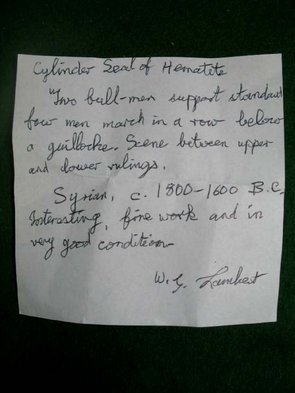 Cylinder Seal of Hematite
"Two bull-men support standard
four men march in a row below
a guilloche. Scene between upper
and lower rulings.
Syrian, c. 1800-1600 B.C.
Interesting, fine work and in
very good condition
W. G. Lambert